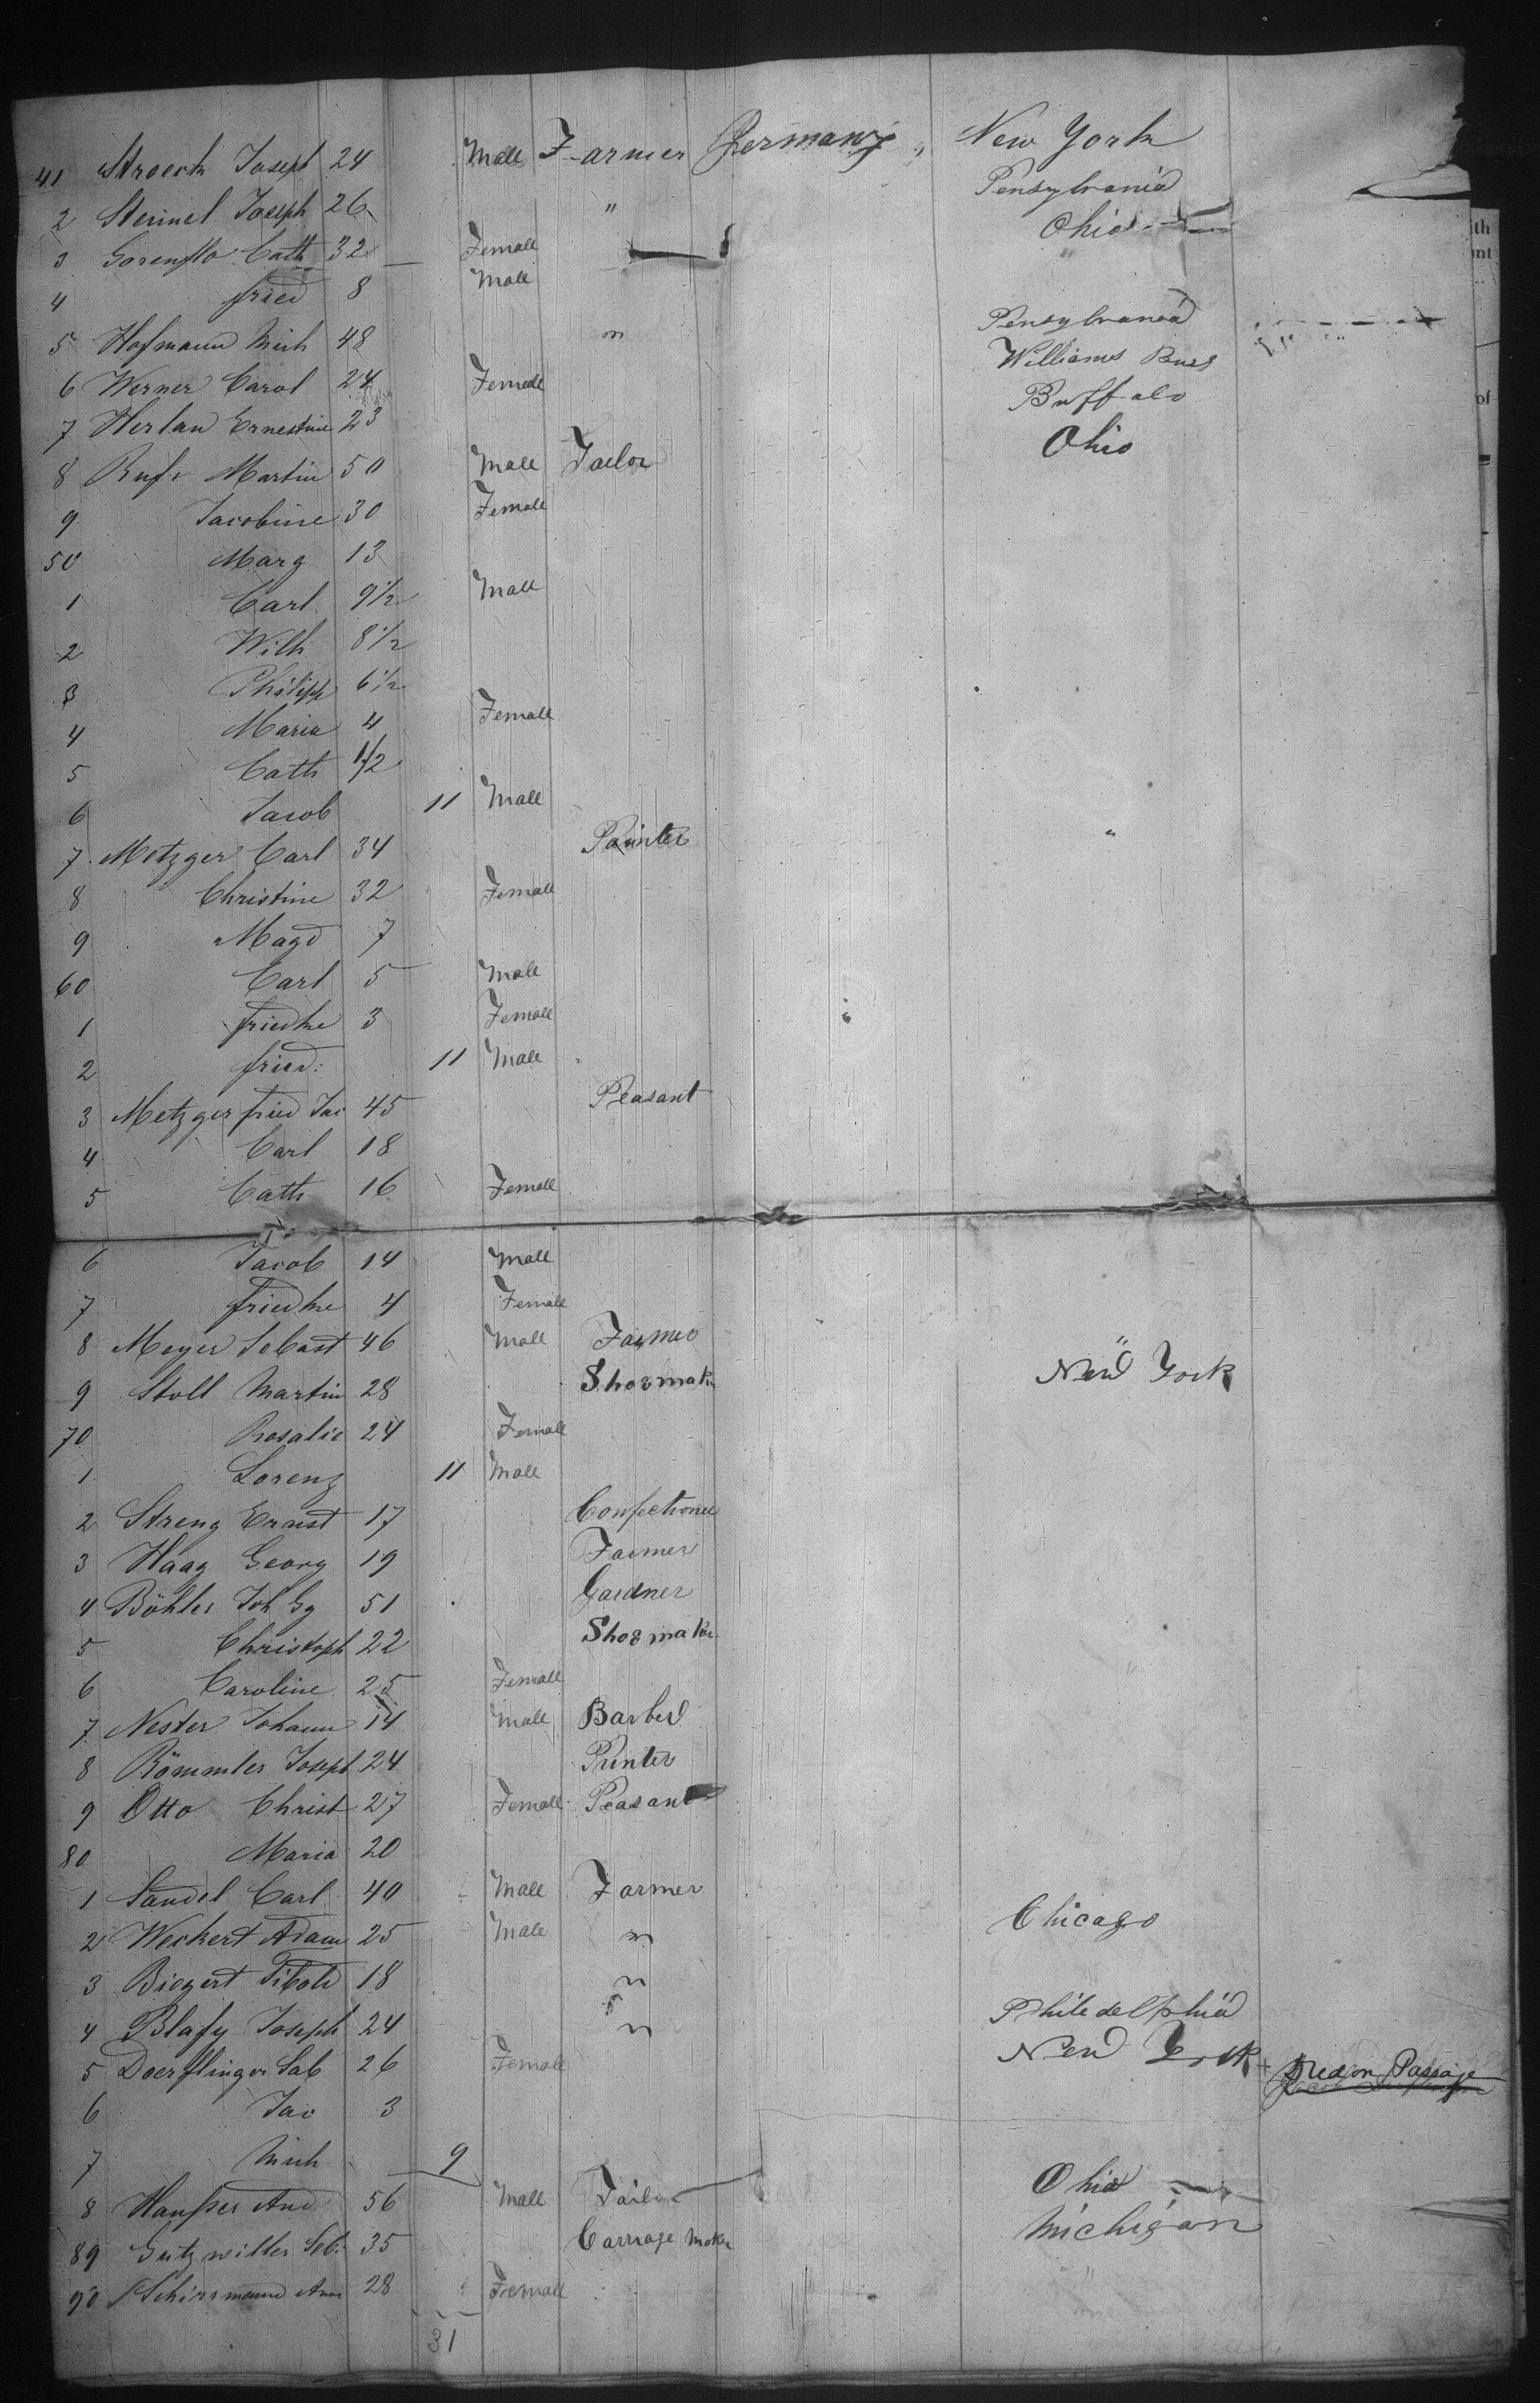 41 Stroeck Joseph 24 Male Farmer Germany " New York
2 Steimel Joseph 26 " Pensylvania
3 Gorenflo Cath 32 Female Ohio
4 fried 8 Male "
5 Hofmann Mich 48 " Pensylvania
6 Werner Carol 24 Female Williams Burg
7 Herlan Ernestine 23 Buffalo
8 Ruf Martin 50 Male Tailor Ohio
9 Jacobine 30 Female
50 Marg 13
1 Carl 9 1/2 Male
2 Wilh 8 1/2
3 Philipp 6 1/2
4 Maria 4 Female
5 Cath 1/2
6 Jacob 11 Male
7 Metzger Carl 34 Painter "
8 Christine 32 Female
9 Magd 7
60 Carl 5 Male
1 friedke 3 Female
2 fried: 11 Male
3 Metzger fried Jac 45 Peasant
4 Carl 18
5 Cath 16 Female
6 Jacob 14 Male
7 friedke 4 Female
8 Meyer Sebast 46 Male Farmer "
9 Stoll Martin 28 Shoemaker New York
70 Rosalie 24 Female
1 Lorenz 11 Male
2 Streng Ernst 17 Confectioner
3 Haag Georg 19 Farmer
4 Böhler Joh Gg 51 Gardner
5 Christoph 22 Shoemaker
6 Caroline 25 Female
7 Nester Johann 14 Male Barber
8 Römmler Joseph 24 Printer
9 Otto Christ 27 Female Peasant
80 Maria 20
1 Sandel Carl 40 Male Farmer
2 Weckert Adam 25 Male " Chicago
3 Biegert Tibold 18 "
4 Blasy Joseph 24 " Philadelphia
5 Doerflinger Sab 26 Female New York + Died on Passage
6 Jac 3
7 Mich 9
8 Hausser And 56 Male Tailor Ohio
89 Gutzwiller Seb. 35 Carriage Maker Michigan
90 Schirrmann Ann 28 Female "
31